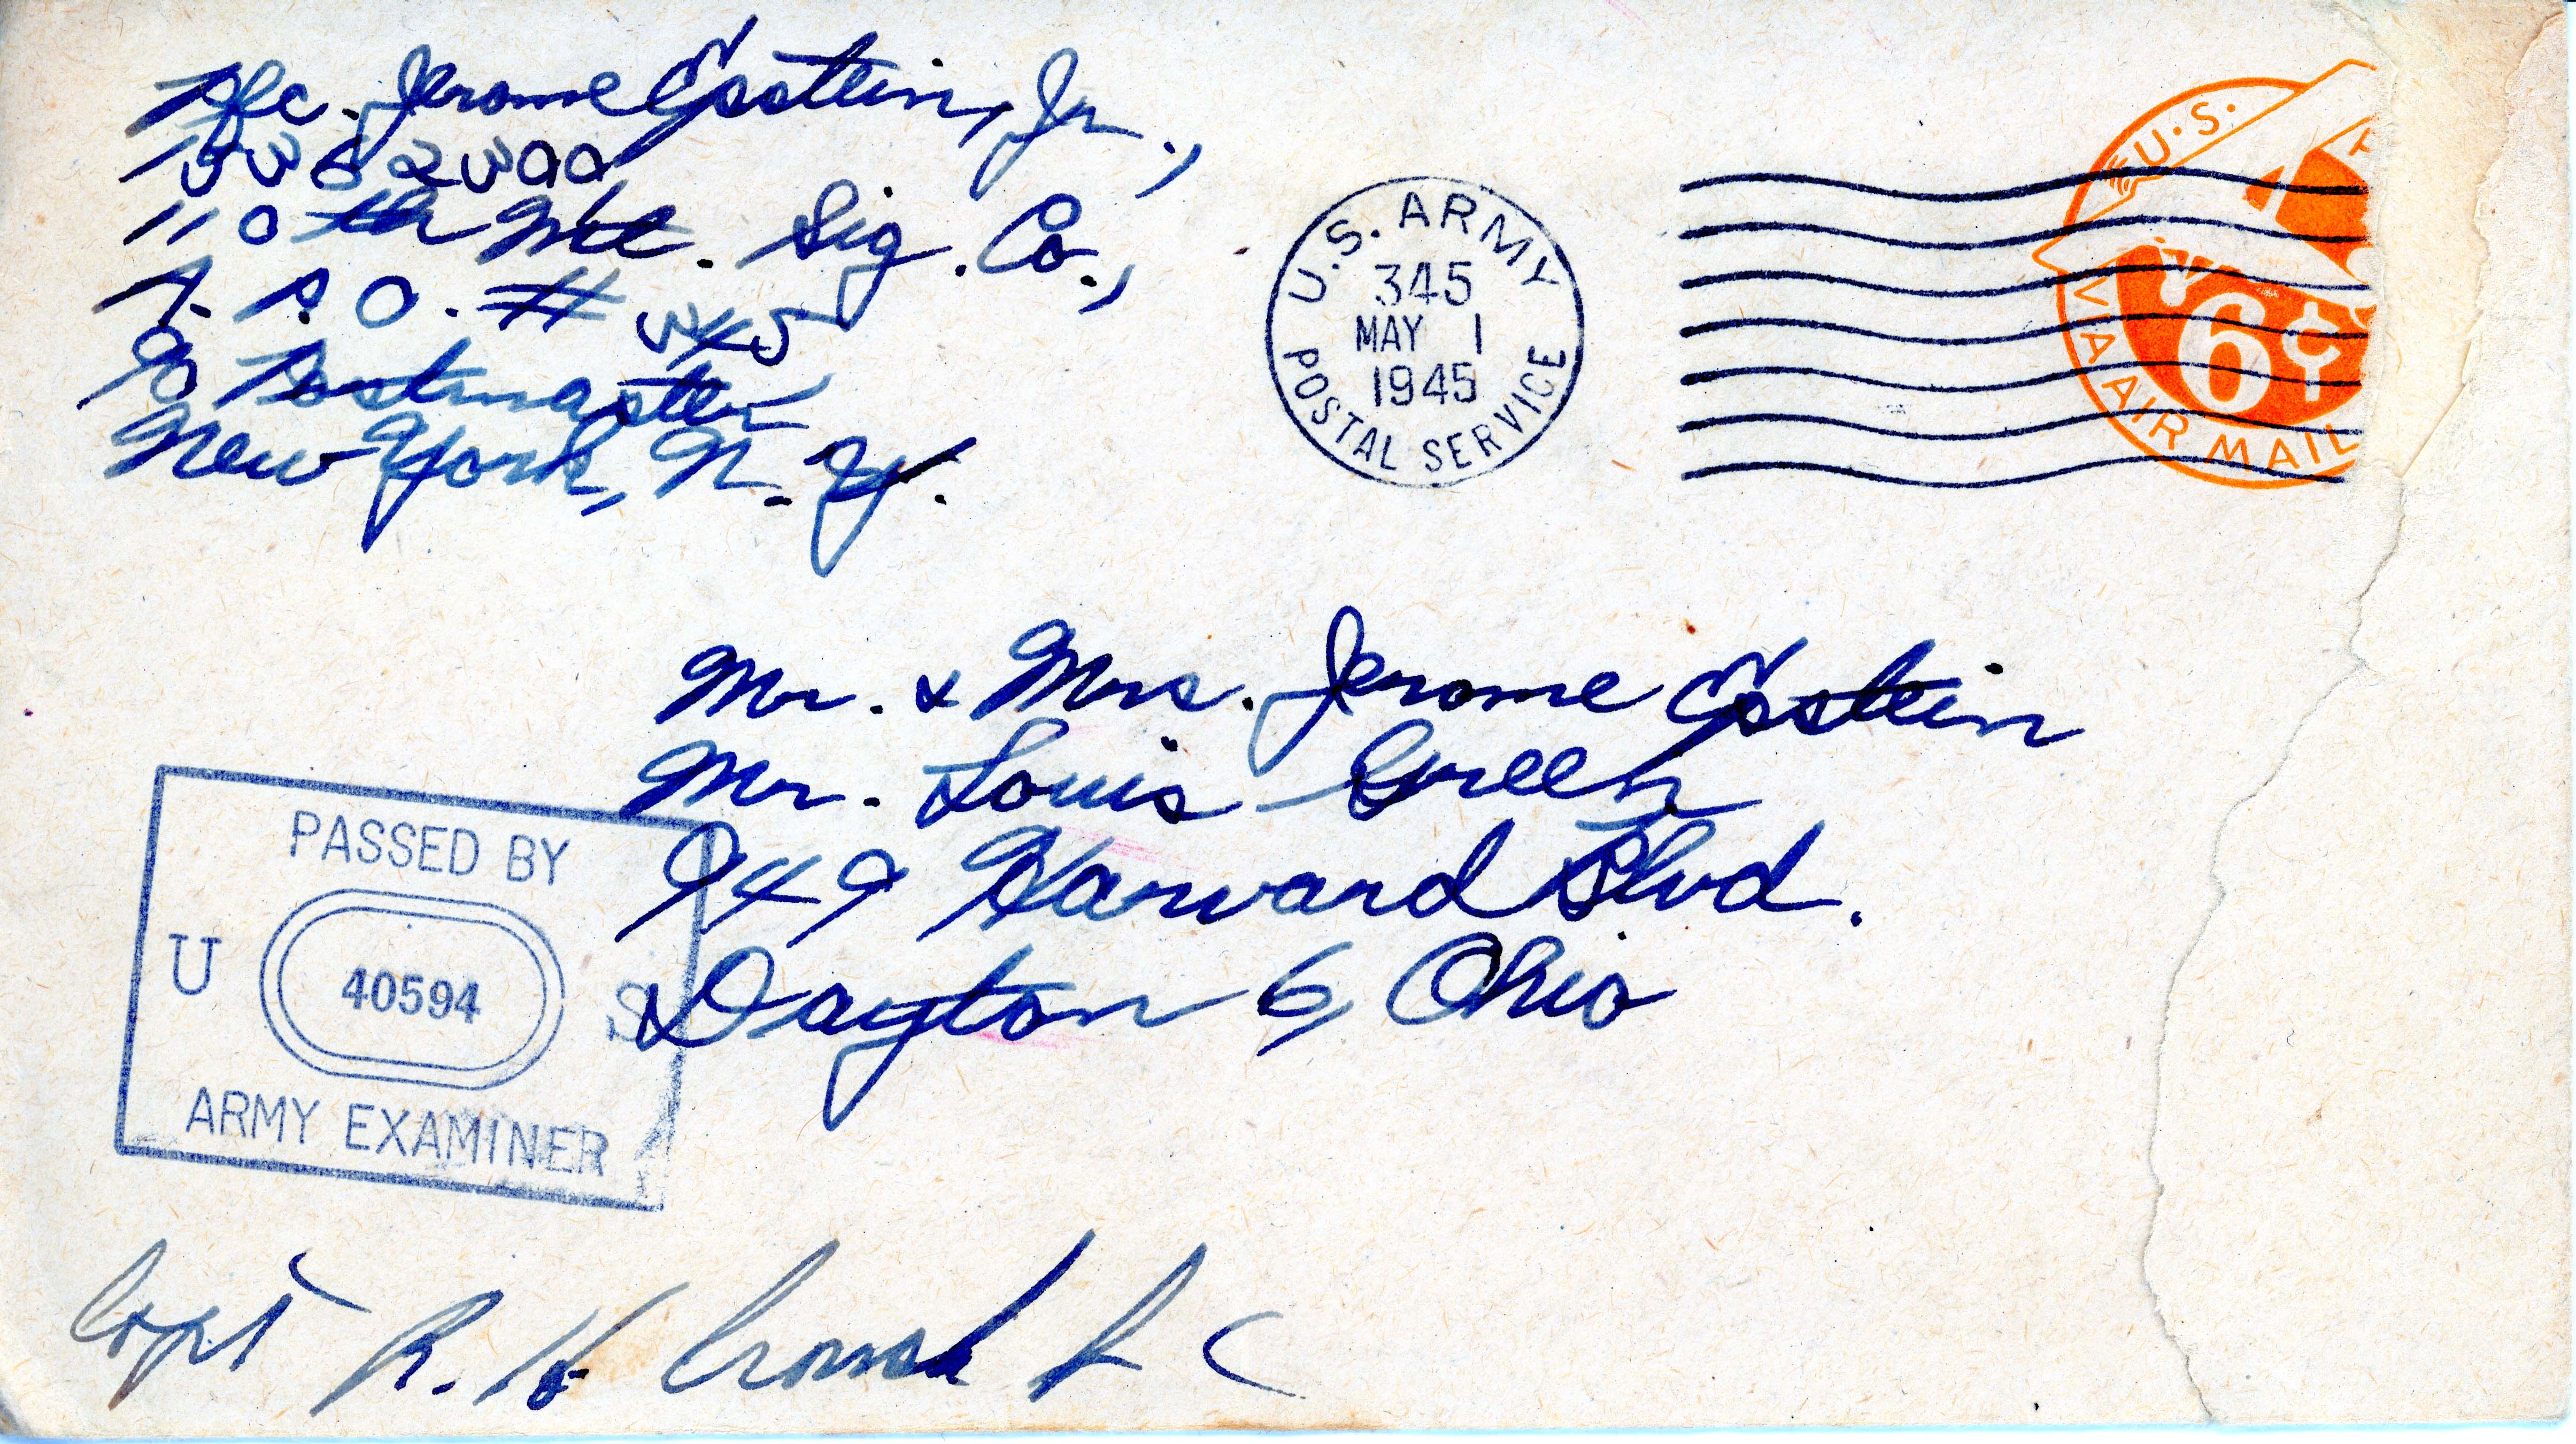 Pfc. Jerome Epstein, Jr.,
A.P.O. # 345
℅ Postmaster
New York, N.Y.
U.S. ARMY
345
MAY 1
1945
POSTAL SERVICE
U.S.
6¢
VIA AIR MAIL
Mr. & Mrs. Jerome Epstein
Mr. Louis Green
949 Harvard Blvd.
Dayton 6, Ohio
PASSED BY
U 40594 S
ARMY EXAMINER
Capt R. H.